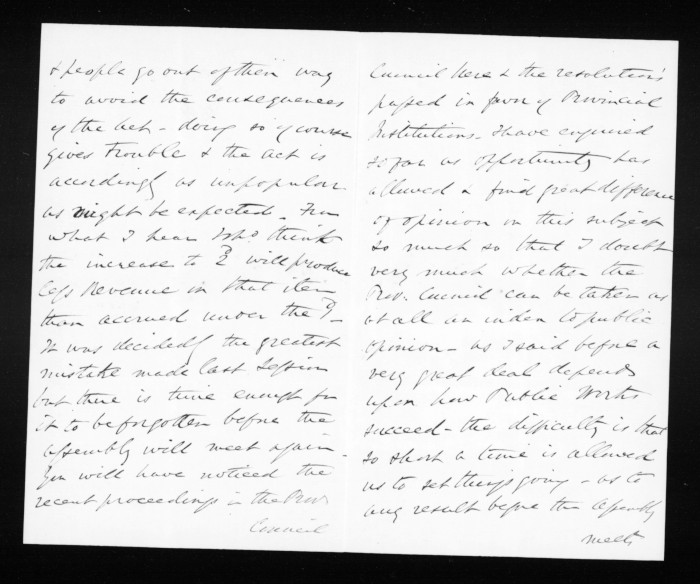 & people go out of their way
to avoid the consequences
of the Act - doing so of course
gives Trouble & the act is
accordingly as unpopular
as might be expected - From
what I hear I shd. think
the increase to 2d will produce
less Revenue in that item
than accrued under the 1d -
It was decidedly the greatest
mistake made last Session
but there is time enough for
it to be forgotten before the
Assembly will meet again -
You will have noticed the
recent proceedings in the Prov
Council
Council here & the resolutions
passed in favor of Provincial
Institutions - I have enquired
so far as opportunity has
allowed & find great difference
of opinion on this subject
so much so that I doubt
very much whether the
Prov. Council can be taken as
at all an index to public
opinion - as I said before a
very great deal depends
upon how Public Works
succeed - the difficulty is that
so short a time is allowed
us to set things going - as to
any result before the Assembly
meets